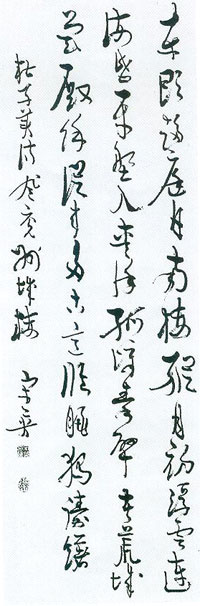 東郡趨庭日南樓縱目初浮雲連
海岱平野入青徐孤嶂秦碑在荒城
魯殿餘從來多古意臨眺獨躊躇
杜子美詩登兗州城樓